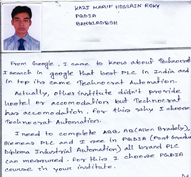 KAZI MARUF HOSSAIN ROKY
PGDIA
BANGLADESH
From Google, I came to know about Technocrat
I search in google that best PLC in India and
in top its came Technocrat Automation.
Actually, others institute didn't provide
hostel or accomodation but Technocrat
has accomodation. For this why I choose
Technocrat Automation.
I need to complete AB (Allen Bradely),
Siemens PLC and I see in PGDIA (Post Graduate
Diploma Industrial Automation) all brand PLC
can measured. For this I choose PGDIA
course in your institute.